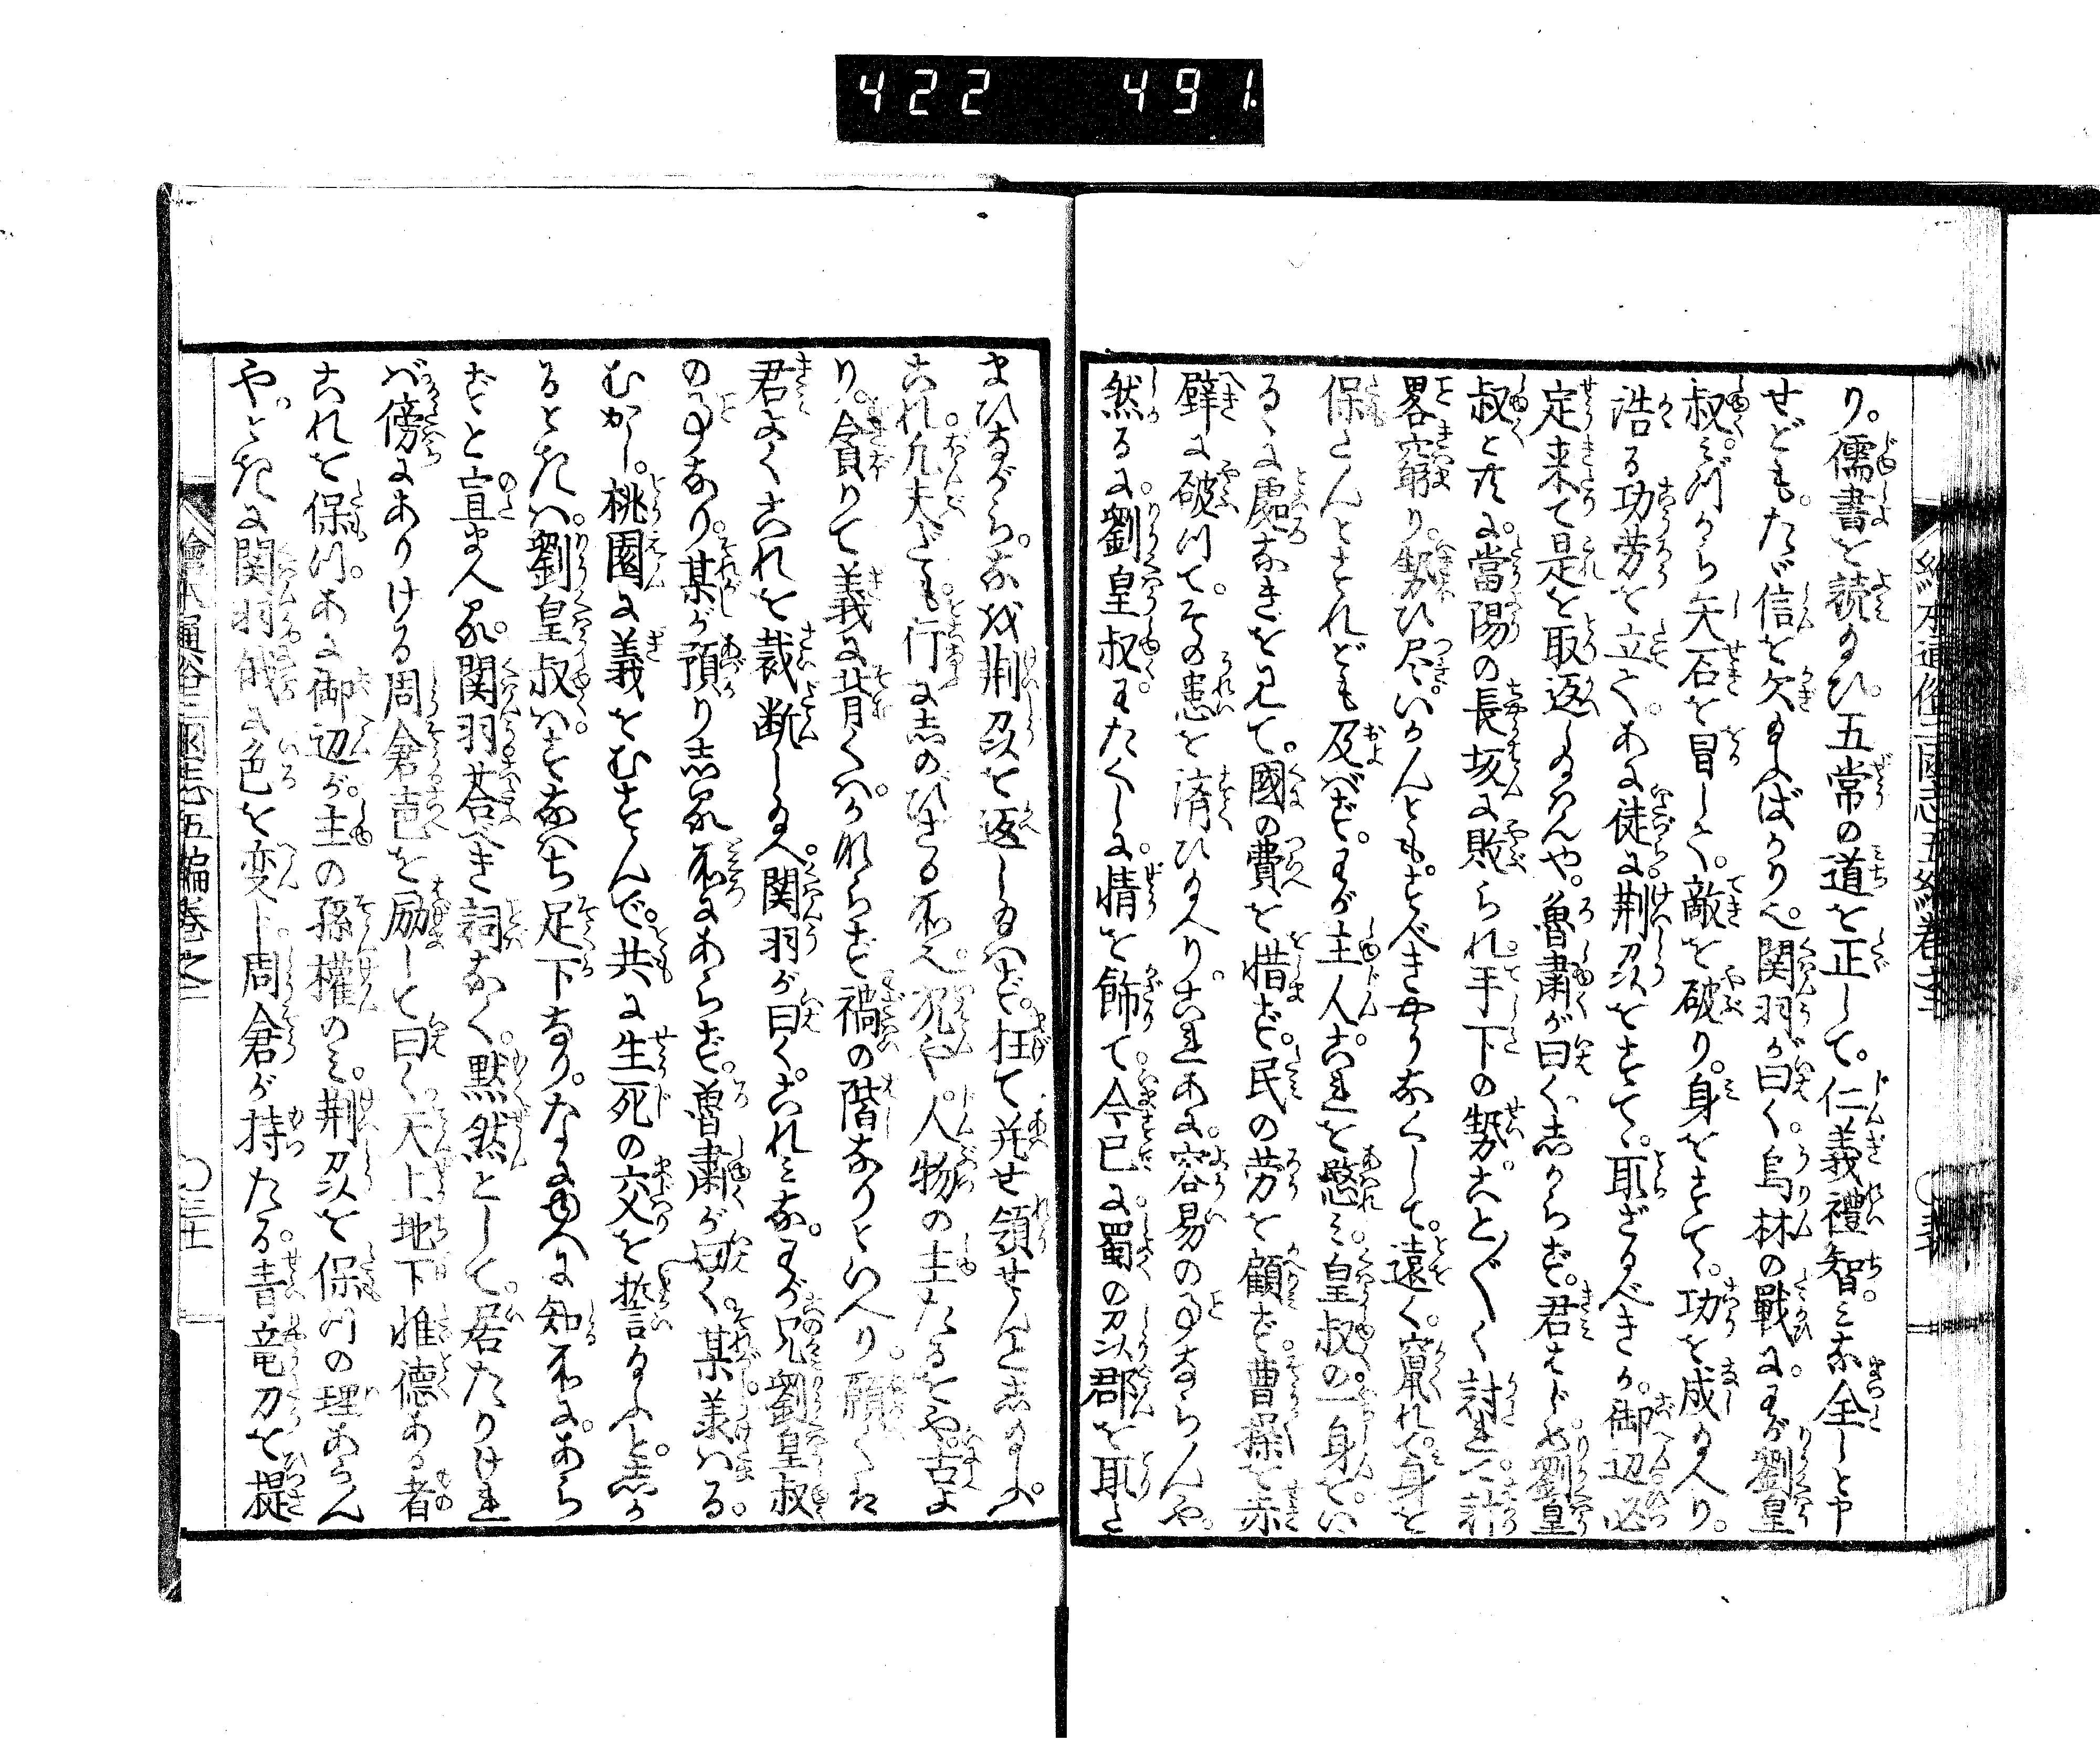 422 491.
繪本通俗三國志五編卷之二
り。儒書を読給ひ。五常の道を正して。仁義禮智。みな全しと申
せども。たゞ信を欠給ふばかりへ。関羽が曰く。烏林の戰に。わが劉皇
叔。みづから矢石を冒して。敵を破り。身をすてゝ。功を成給へり。
浩る功劳を立て。あに徒に荆州をすてゝ。取ざるべきか。御辺必
定来て是を取返し給はんや。魯肅が曰く。志からず。君はじめ劉皇
叔と共に。當陽の長坂に敗られ。手下の勢。ことごとく討れ。計
畧窮り。勢ひ尽。いかんとも。すべきやうなくして。遠く竄れ。身を
保たんとすれども及ばず。わが主人。これを愍み。皇叔の一身を。い
るゝに處なきを見て。國の費を惜ず。民の劳を顧ず。曹操を赤
壁に破つて。その患を済ひ給へり。これあに。容易の事ならんや。
然るに。劉皇叔。わたくしに。情を飾て。今已に。蜀の州郡を取た
まひながら。なを荆州を返し給はず。枉て并せ領せんと志給ふ。
これ。凡夫ども。行に志のびざる所也。况や。人物の主たるをや。古よ
り。貪りて義に背くハ。かならず禍の階なりといへり。願くは
君よくこれを裁断し給へ。関羽が曰く。これみな。わが兄劉皇叔
の事なり。某が預り志る所にあらず。魯肅が曰く。某義はる。
むかし。桃園に義をむすんで。共に生死の交を誓給ふと。志か
るときハ。劉皇叔ハ。すなはち足下なり。なにゆへに知所に。あら
ずと宣まふ。関羽荅べき詞なく。默然として。居たりけれ
バ傍にありける周倉声を励して曰く。天上地下惟德ある者
これを保つ。あに御辺が。主の孫權のミ。荆州を保つの理あらん
や。ときに関羽俄に色を変じ。周倉が持たる。青竜刀を提
繪本通俗三國志五編卷之二